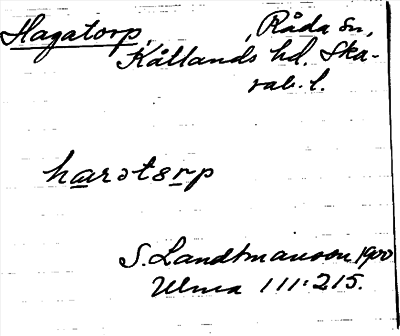 Hagatorp, , Råda sn,
Kållands hd. Ska-
rab. l.
harɔtsrp
S. Landtmanson 1900
Ulma 111:215.